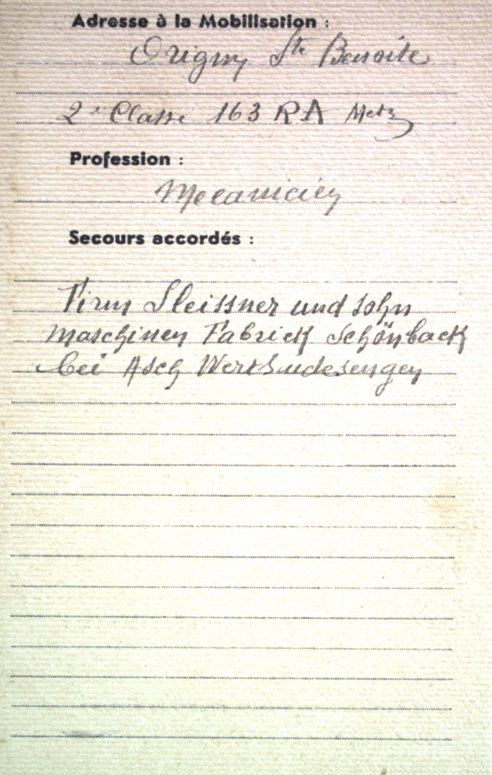 Adresse à la Mobilisation :
Origny Ste Benoite
2e Classe 163 RA Metz
Profession :
Mecanicien
Secours accordés :
Firm Sleissner und sohn
Maschinen Fabrick Schönback
bei Asch